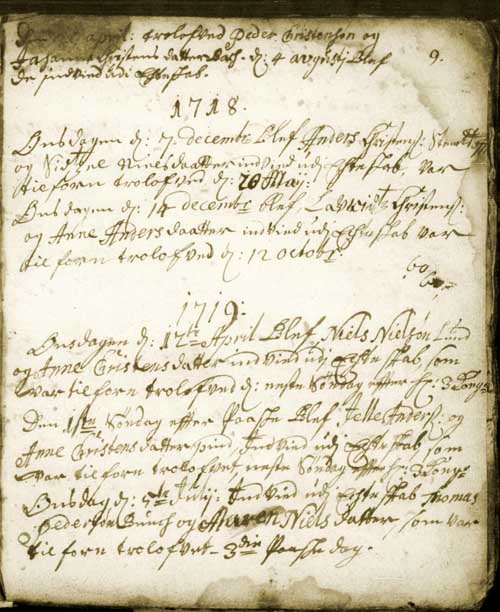 april: trolofved Peder Christensøn og
Christens datter d: 4 augustj blef
de indviedt udi Echteskab.
9.
1718.
Onsdagen d: 7 decembr blef Anders Christens:
og Nielsdaatter indvied udj Echteskab var
til forn trolofved d: 20 Maij:
Onsdagen d: 14 decembr blef Lauridtz Christens:
og Anne Anders daatter indvied udj Echteskab var
til forn trolofved d: 12 octobr
1719:
Onsdagen d: 12te April blef Niels Nielsøn Lund
og Anne Christens datter indvied udj Echte skab som
var til forn trolofved d: neste Søndag efter
Den 1ste Søndag efter Paaske blef Anders: og
Anne Christens datter indvied udj Echteskab som
var til forn trolofvet neste Søndag efter
Onsdag d: Julij: indvied udj Echte skab Thomas
Pedersøn Bunch og Maren Niels datter, som var
til forn trolofvet 3die Paaske dag.